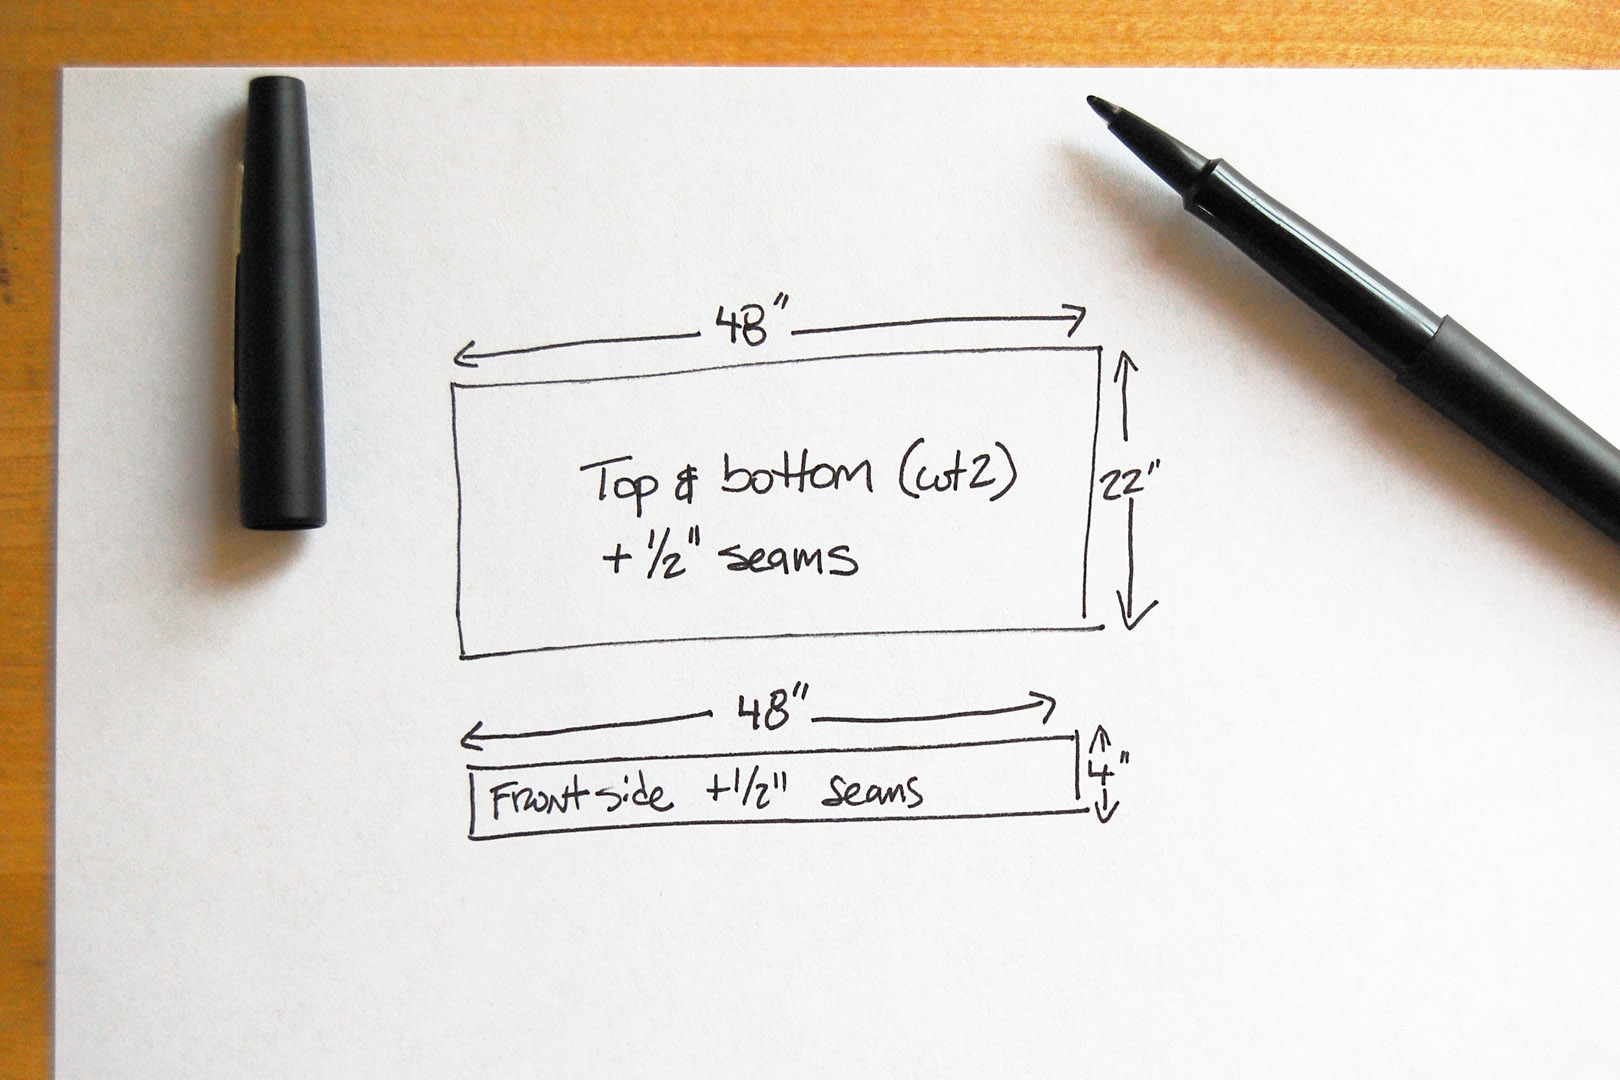 48"
Top & bottom (cut 2)
22"
+ 1/2" seams
48"
Front side + 1/2" seams
4"